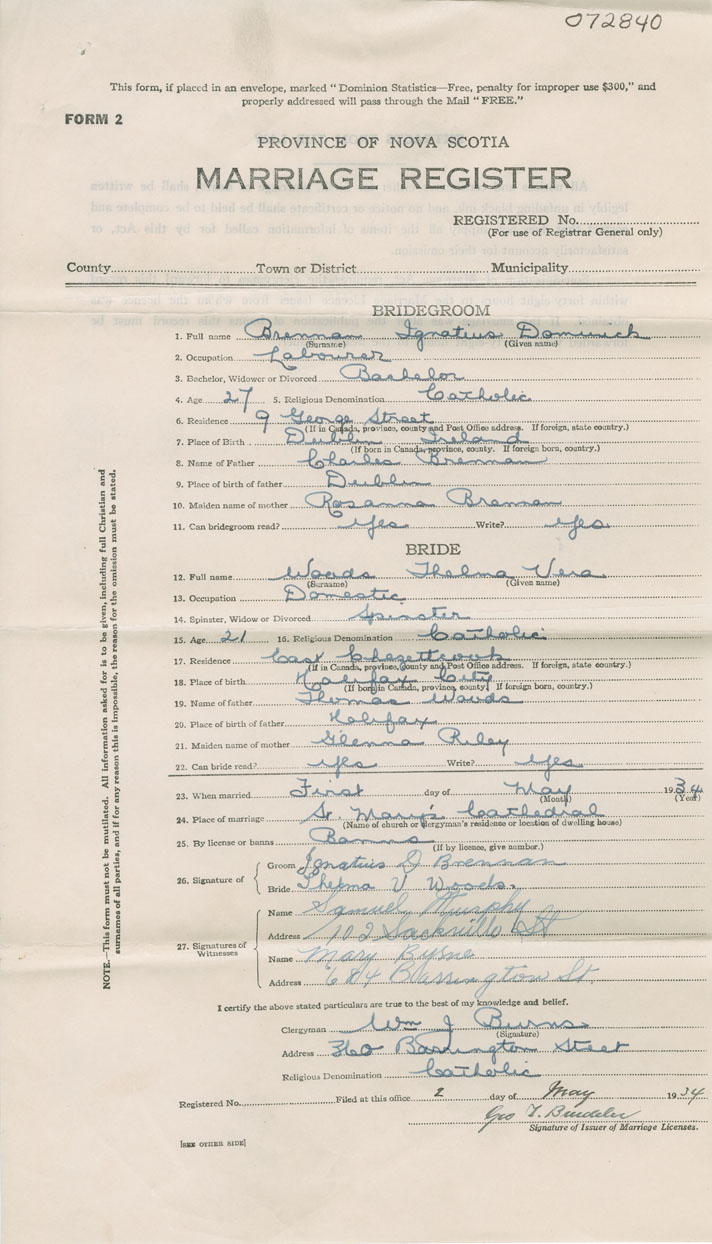 072840
This form, if placed in an envelope, marked "Dominion Statistics—Free, penalty for improper use $300," and
properly addressed will pass through the Mail "FREE."
FORM 2
PROVINCE OF NOVA SCOTIA
MARRIAGE REGISTER
REGISTERED No.
(For use of Registrar General only)
County Town or District Municipality
BRIDEGROOM
1. Full name Brennan Ignatius Dominick
(Surname) (Given name)
2. Occupation Labourer
3. Bachelor, Widower or Divorced Bachelor
4. Age 27 5. Religious Denomination Catholic
6. Residence 9 George Street
(If in Canada, province, county and Post Office address. If foreign, state country.)
7. Place of Birth Dublin Ireland
(If born in Canada, province, county. If foreign born, country.)
8. Name of Father Charles Brennan
9. Place of birth of father Dublin
10. Maiden name of mother Rosanna Brennan
11. Can bridegroom read? Yes Write? Yes
BRIDE
12. Full name Woods Thelma Vera
(Surname) (Given name)
13. Occupation Domestic
14. Spinster, Widow or Divorced Spinster
15. Age 21 16. Religious Denomination Catholic
17. Residence East Chezettcook
(If in Canada, province, county and Post Office address. If foreign, state country.)
18. Place of birth Halifax City
(If born in Canada, province, county. If foreign born, country.)
19. Name of father Thomas Woods
20. Place of birth of father Halifax
21. Maiden name of mother Glenna Riley
22. Can bride read? Yes Write? Yes
23. When married First day of May 1934
(Month) (Year)
24. Place of marriage St. Mary's Cathedral
(Name of church or clergyman's residence or location of dwelling house)
25. By license or banns Banns
(If by licence, give number.)
26. Signature of Groom Ignatius D Brennan
Bride Thelma V Woods.
27. Signatures of Witnesses
Name Samuel Murphy
Address 102 Sackville St
Name Mary Byrne
Address 684 Barrington St.
I certify the above stated particulars are true to the best of my knowledge and belief.
Clergyman Wm J Burns
(Signature)
Address 360 Barrington Street
Religious Denomination Catholic
Registered No. Filed at this office 2 day of May 1934
Geo T.
Signature of Issuer of Marriage Licenses.
[SEE OTHER SIDE]
NOTE.—This form must not be mutilated. All information asked for is to be given, including full Christian and
surnames of all parties, and if for any reason this is impossible, the reason for the omission must be stated.